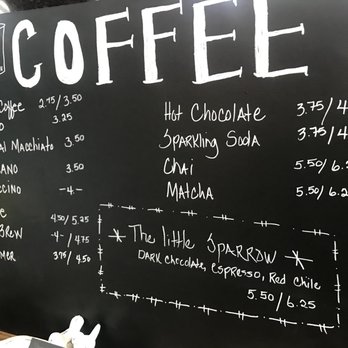 COFFEE
Coffee 2.75/3.50
O 3.25
al Macchiato 3.50
ANO 3.50
ccino -4-
e 4.50/5.25
Brew -4-/4.75
mer 3.75/4.50
Hot Chocolate 3.75/4
Sparkling Soda 3.75/4
Chai 5.50/6.2
Matcha 5.50/6.2
The little Sparrow
Dark Chocolate, Espresso, Red Chile
5.50/6.25